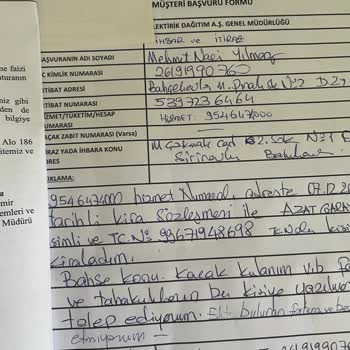 MÜŞTERİ BAŞVURU FORMU
ELEKTİRİK DAĞITIM A.Ş. GENEL MÜDÜRLÜĞÜ
İHBAR ve İTİRAZ
BAŞVURANIN ADI SOYADI Mehmet Naci Yılmaz
TC KİMLİK NUMARASI 26191990760
İRTİBAT ADRESİ Bahçelievler M. No:2 D29
İRTİBAT NUMARASI 5397236464
HİZMET/TÜKETİM/HESAP NUMARASI Hizmet: 9546474000
KAÇAK ZABIT NUMARASI (Varsa)
İTİRAZ YADA İHBARA KONU ADRES M. Çakmak Cad 82. Sok N=1
Şirinevler
AÇIKLAMA:
9546474000 hizmet Numaralı adreste 07.12.20
tarihli kira Sözleşmesi ile AZAT
isimli ve TC.No 99671948698
kiraladım.
Bahse konu Kaçak kullanım vb
ve tahakkukların bu kişiye yazılması
talep ediyorum. Elt bulunan fatura ve
etmiyorum
me faizi
aturanın
niz gibi
den de
bilgiye
Alo 186
itemiz ve
mir
emleri ve
Müdürü